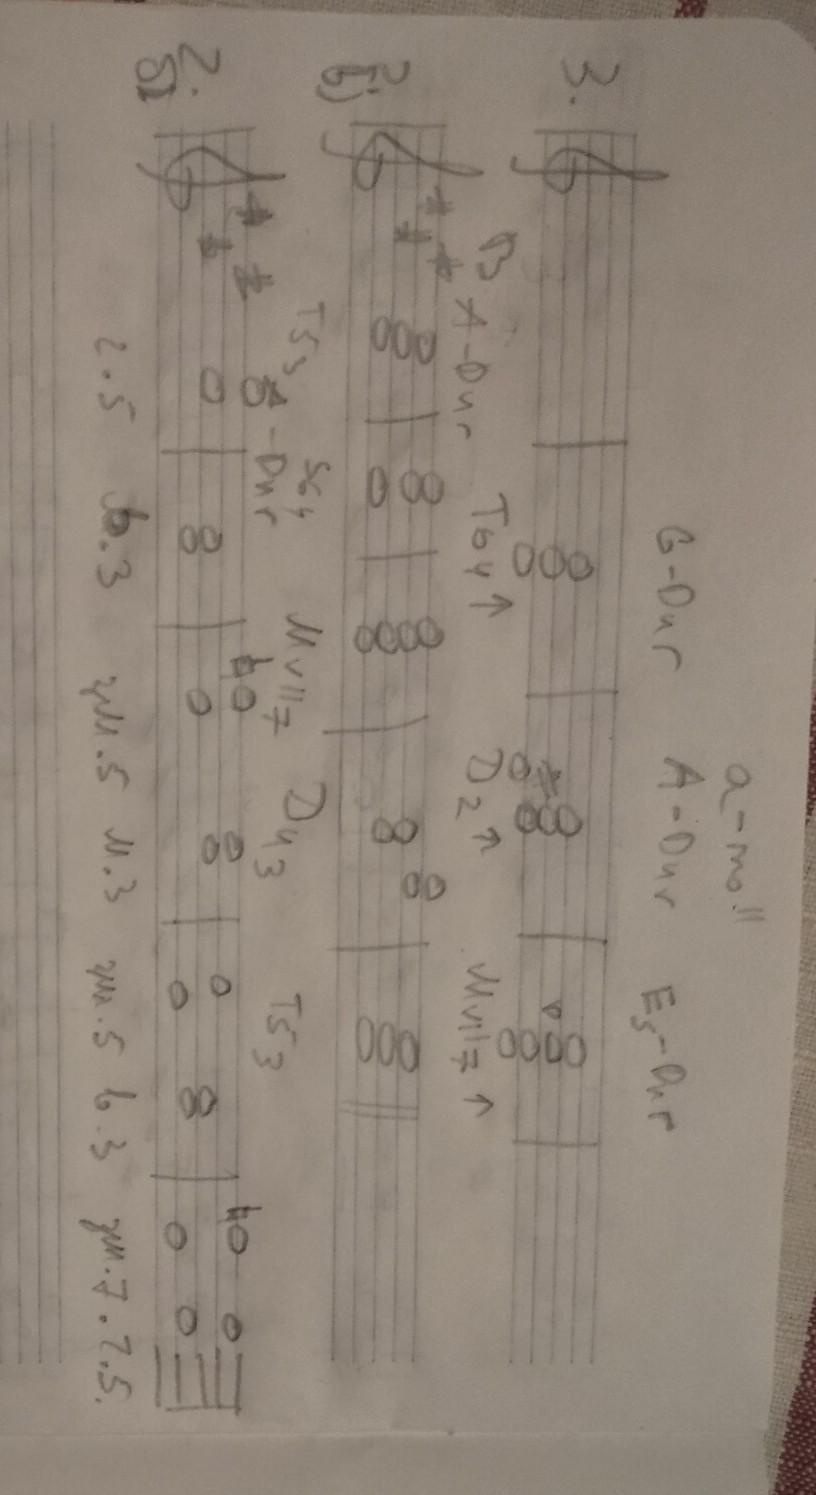 a-moll
G-Dur A-Dur Es-Dur
3.
T64↑ D2↑ MVII7↑
В A-Dur
2. б)
T53 S64 MVII7 D43 T53
A-Dur
2.
ч.5 б.3 ум.5 м.3 ум.5 б.3 ум.7. ч.5.